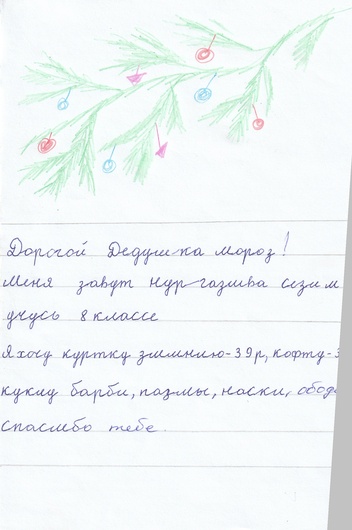 Дорогой Дедушка мороз!
Меня завут Нургазива сезим
учусь 8 классе
Я хочу куртку зимнию-39р, кофту-3
куклу барби, пазлы, наски,
спасибо тебе.